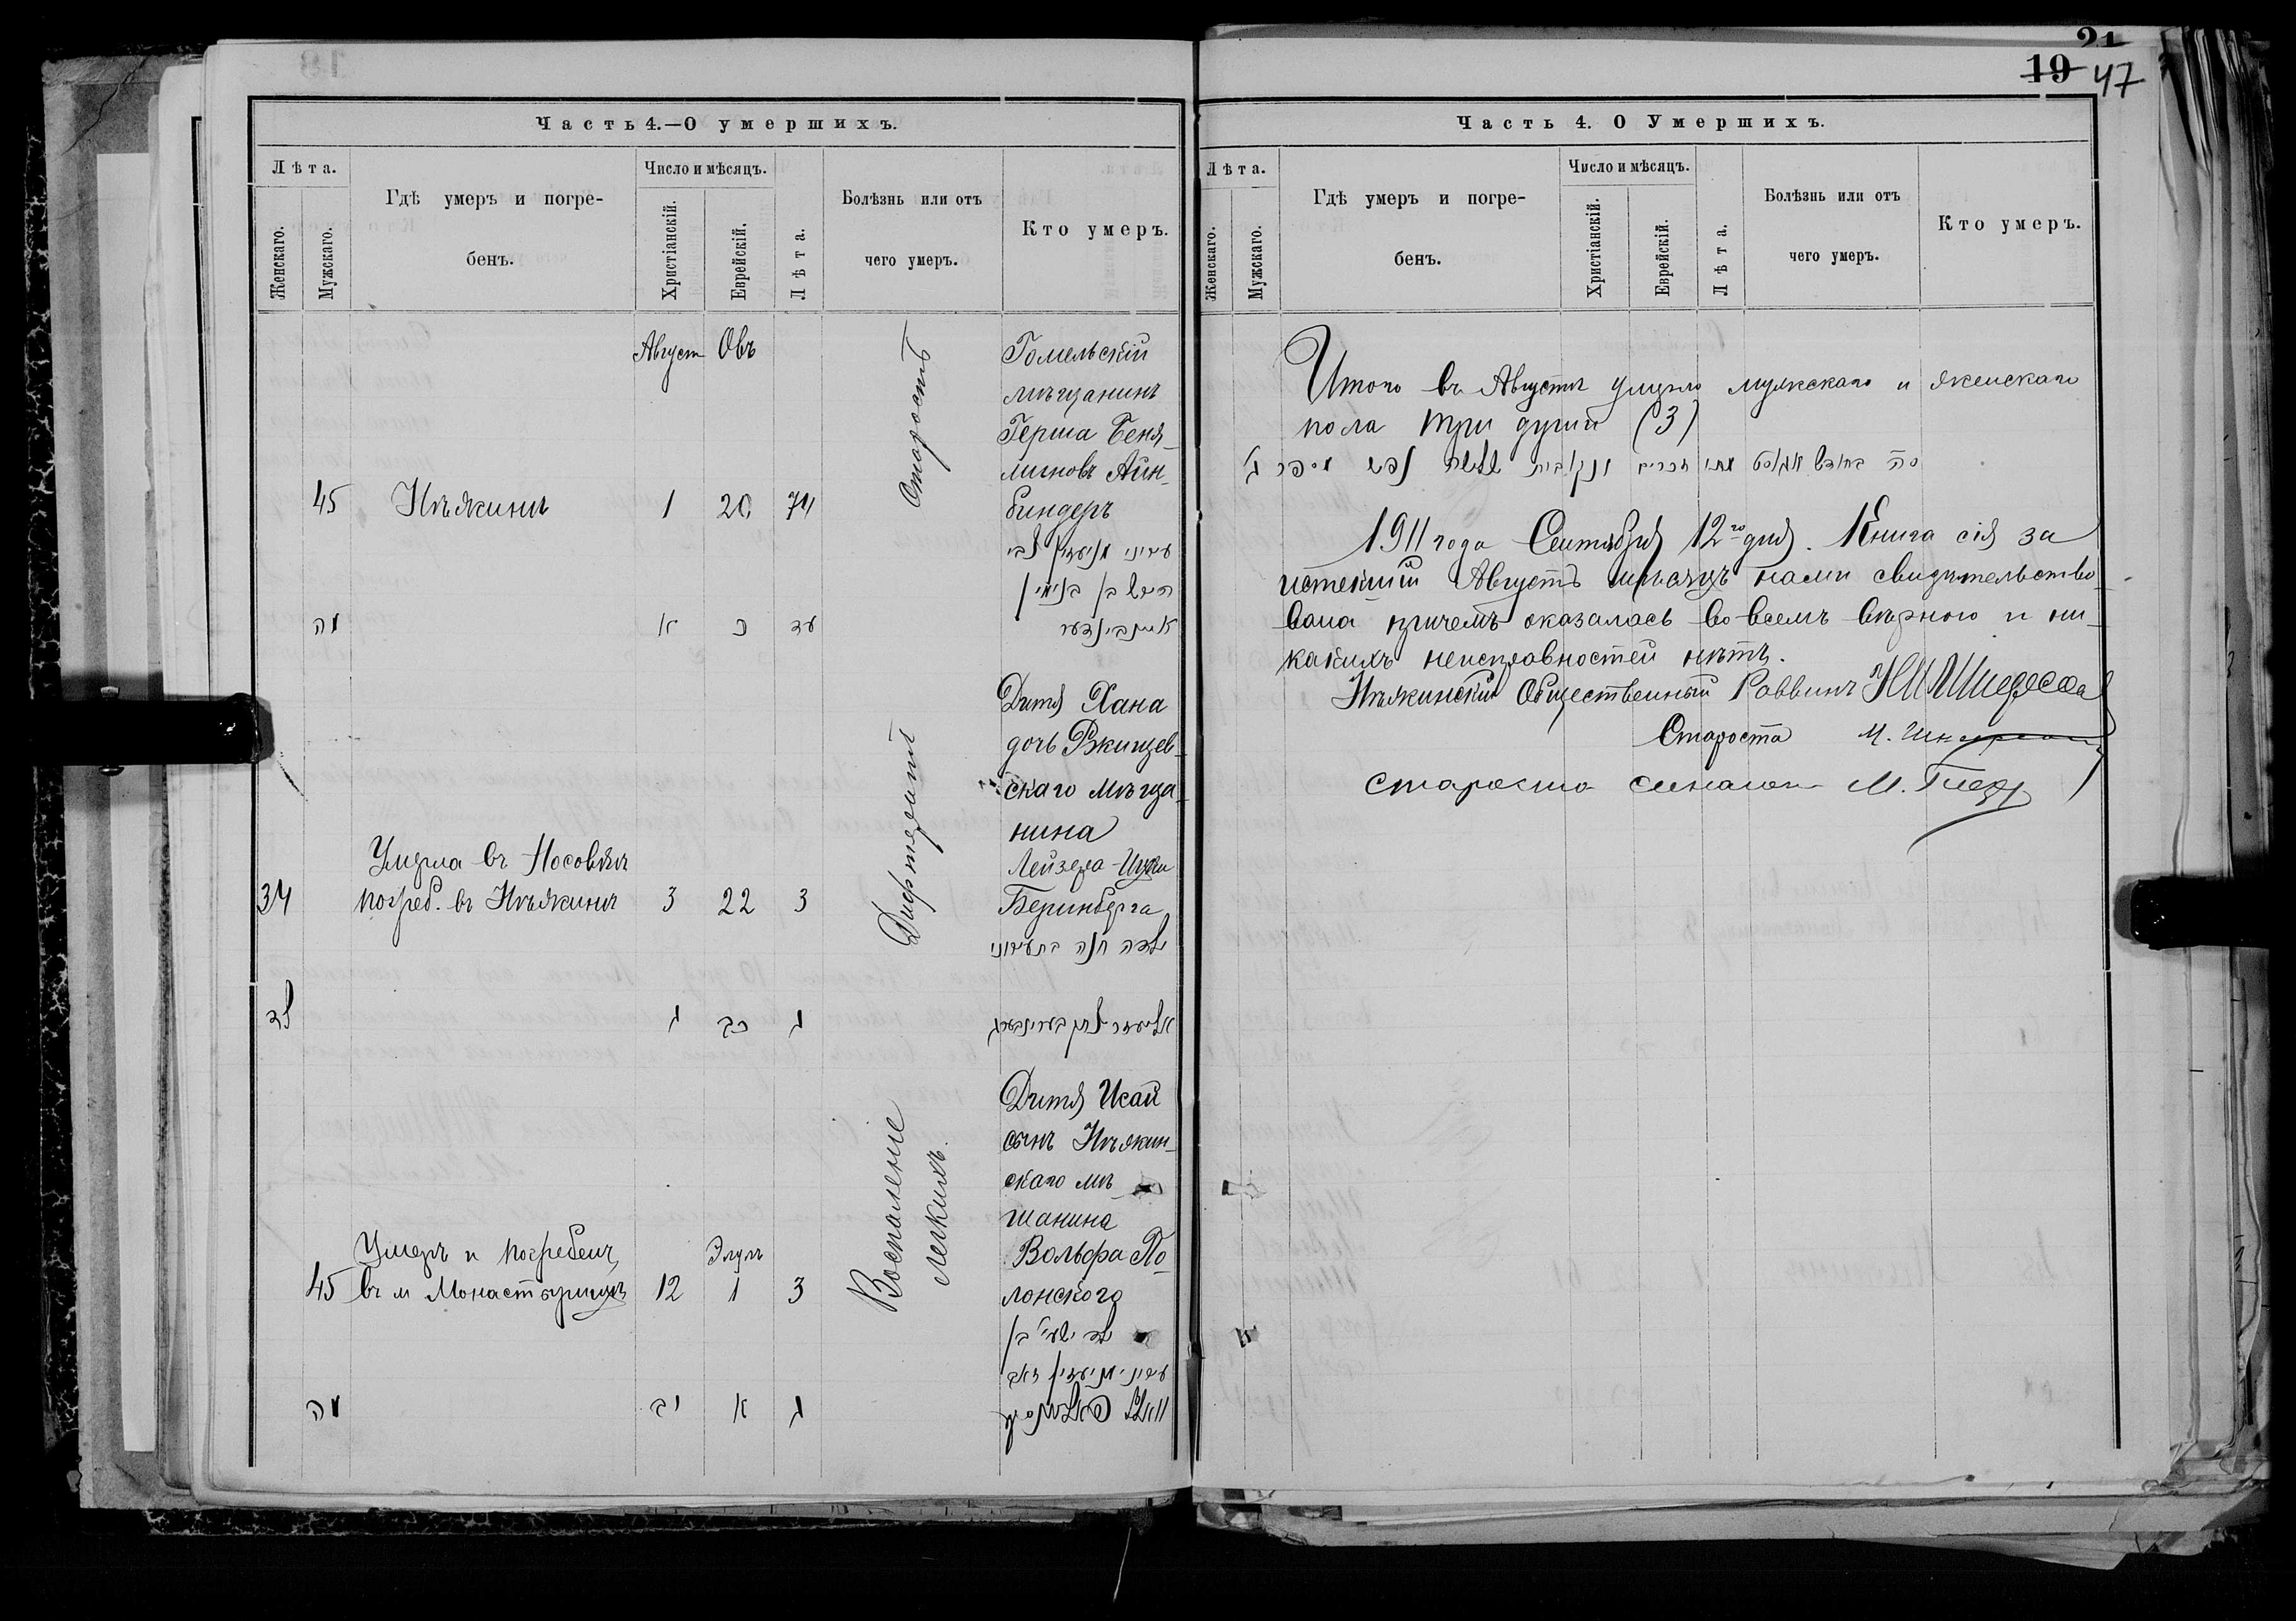 18
Часть 4.—О умершихъ.
Лѣта.
Женскаго.
Мужскаго.
Гдѣ умеръ и погре-
бенъ.
Число и мѣсяцъ.
Христіанскій.
Еврейскій.
Лѣта.
Болѣзнь или отъ
чего умеръ.
Кто умеръ.
Август Овъ
45 Нѣжинѣ 1 20 74
Старость
Гомельскій
мѣщанинъ
Герша Беня-
миновъ Айн-
биндеръ
הירש בן בנימין
איינבינדער
מה א כ עד
Умерла въ Носовкѣ
34 погреб. въ Нѣжинѣ 3 22 3
Дифтеритъ
Дитя Хана
дочь Ржищев-
скаго мѣща-
нина
Лейзера-Ицки
Беринберга
ילדה חנה בת
לד ג כב ג
Умеръ и погребенъ
Элулъ
45 въ м Монастырищѣ 12 1 3
Воспаление
легкихъ.
Дитя Исай
сынъ Нѣжин-
скаго мѣ-
щанина
Вольфа По-
лонского
ילד ישעי' בן
וואלף פאלאנסקי
מה יב א ג
21
19 47
Часть 4. О Умершихъ.
Лѣта.
Женскаго.
Мужскаго.
Гдѣ умеръ и погре-
бенъ.
Число и мѣсяцъ.
Христіанскій.
Еврейскій.
Лѣта.
Болѣзнь или отъ
чего умеръ.
Кто умеръ.
Итого въ Августѣ умерло мужскаго и женскаго
пола три души (3)
סה בחודש אגוסט מתו זכרים ונקבות שלשה נפש מספר ג
1911 года Сентября 12го дня. Книга сія за
истекшій Августъ мѣсяцъ нами свидѣтельство-
вана причемъ оказалась во всемъ вѣрною и ни-
какихъ неисправностей нѣтъ.
Нѣжинскій Общественный Раввинъ
Староста М.
староста М.